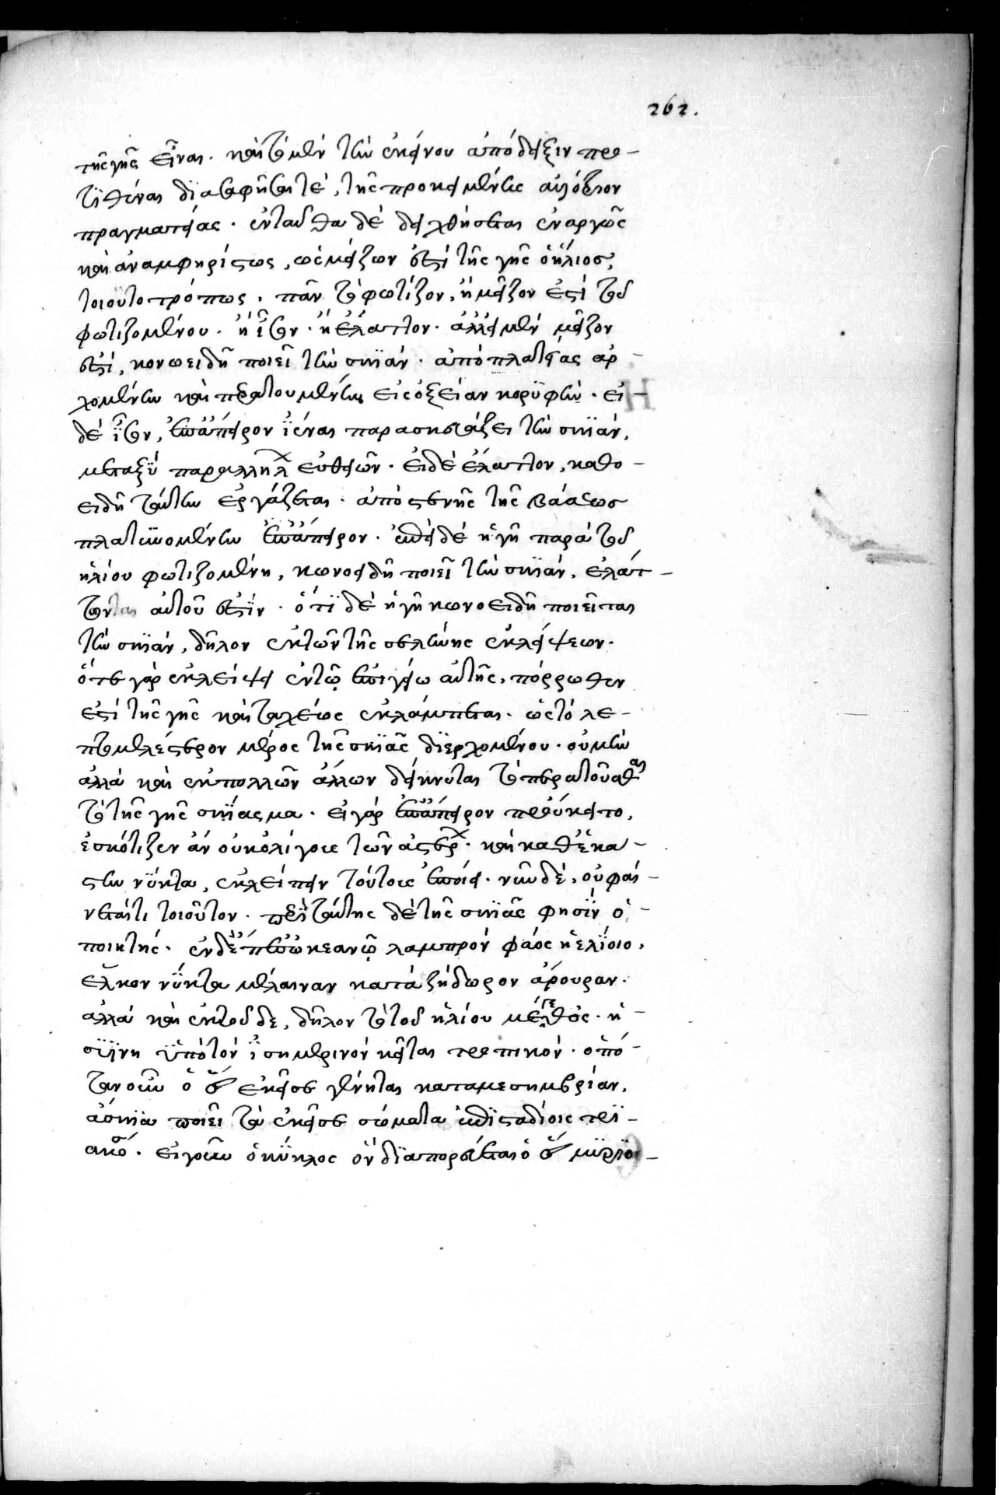 262.
τῆς γῆς εἶναι. καὶ τὸ μὲν τὴν ἐκείνου ἀπόδειξιν προ-
τιθέναι διατριβῆς τε, τῆς προκειμένης ἀλλότριον
πραγματείας. ἐνταῦθα δὲ δειχθήσεται ἐναργῶς
καὶ ἀναμφηρίστως, ὡς μείζων ἐστὶ τῆς γῆς ὁ ἥλιος,
τοιουτοτρόπως. πᾶν τὸ φωτίζον, ἢ μεῖζον ἐστὶ τοῦ
φωτιζομένου. ἢ ἴσον. ἢ ἔλαττον. ἀλλ' εἰ μὲν μεῖζον
ἐστί, κονωειδῆ ποιεῖ τὴν σκιάν. ἀπὸ πλατείας ἀρ-
χομένην καὶ περατουμένην εἰς ὀξεῖαν κορυφήν. εἰ
δὲ ἴσον, ἐπ' ἄπειρον ἰέναι παρασκευάζει τὴν σκιάν,
μεταξὺ παραλλήλων εὐθειῶν. εἰ δὲ ἔλαττον, καθο-
ειδῆ ταύτην ἐργάζεται. ἀπὸ στενῆς τῆς βάσεως
πλατυνομένην ἐπ' ἄπειρον. ἐπεὶ δὲ ἡ γῆ παρὰ τοῦ
ἡλίου φωτιζομένη, κωνοειδῆ ποιεῖ τὴν σκιάν, ἐλάτ-
των αὐτοῦ ἐστίν. ὅτι δὲ ἡ γῆ κωνοειδῆ ποιεῖται
τὴν σκιάν, δῆλον ἐκ τῶν τῆς σελήνης ἐκλείψεων.
ὅτε γὰρ ἐκλείψει ἐν τῷ ἐπιγείῳ αὐτῆς, πόρρωθεν
ἐστὶ τῆς γῆς καὶ ταχέως ἐκλάμπεται. ὡς τὸ λε-
πτομελέστερον μέρος τῆς σκιᾶς διερχομένου. οὐ μὴν
ἀλλὰ καὶ ἐκ πολλῶν ἄλλων δείκνυται τὸ περατοῦσθαι
τὸ τῆς γῆς σκίασμα. εἰ γὰρ ἐπ' ἄπειρον προύκειτο,
ἐσκότιζεν ἂν οὐκ ὀλίγους τῶν ἀστέρων. καὶ καθ' ἑκά-
στην νύκτα, ἐκλείπειν τούτους ἐποίει. νῦν δὲ, οὐ φαί-
νεταί τι τοιοῦτον. περὶ ταύτης δὲ τῆς σκιᾶς φησὶν ὁ
ποιητής. ἐν δ' ἔπεσ' ὠκεανῷ λαμπρὸν φάος ἠελίοιο,
ἕλκον νύκτα μέλαιναν κατὰ ζήδωρον ἄρουραν.
ἀλλὰ καὶ ἐκ τοῦδε, δῆλον τὸ τοῦ ἡλίου μέγεθος. ἡ
συήνη ὑπὸ τὸν ἰσημερινὸν κεῖται τροπικόν. ὁπό-
ταν οὖν ὁ ἥλιος ἐκεῖσε γένηται κατὰ μεσημβρίαν,
ἄσκια ποιεῖ τὰ ἐκεῖσε σώματα ἐπὶ σταδίοις τρι-
ακοσίοις. εἰ γοῦν ὁ κύκλος ὃν διαπορεύεται ὁ ἥλιος μυριο-